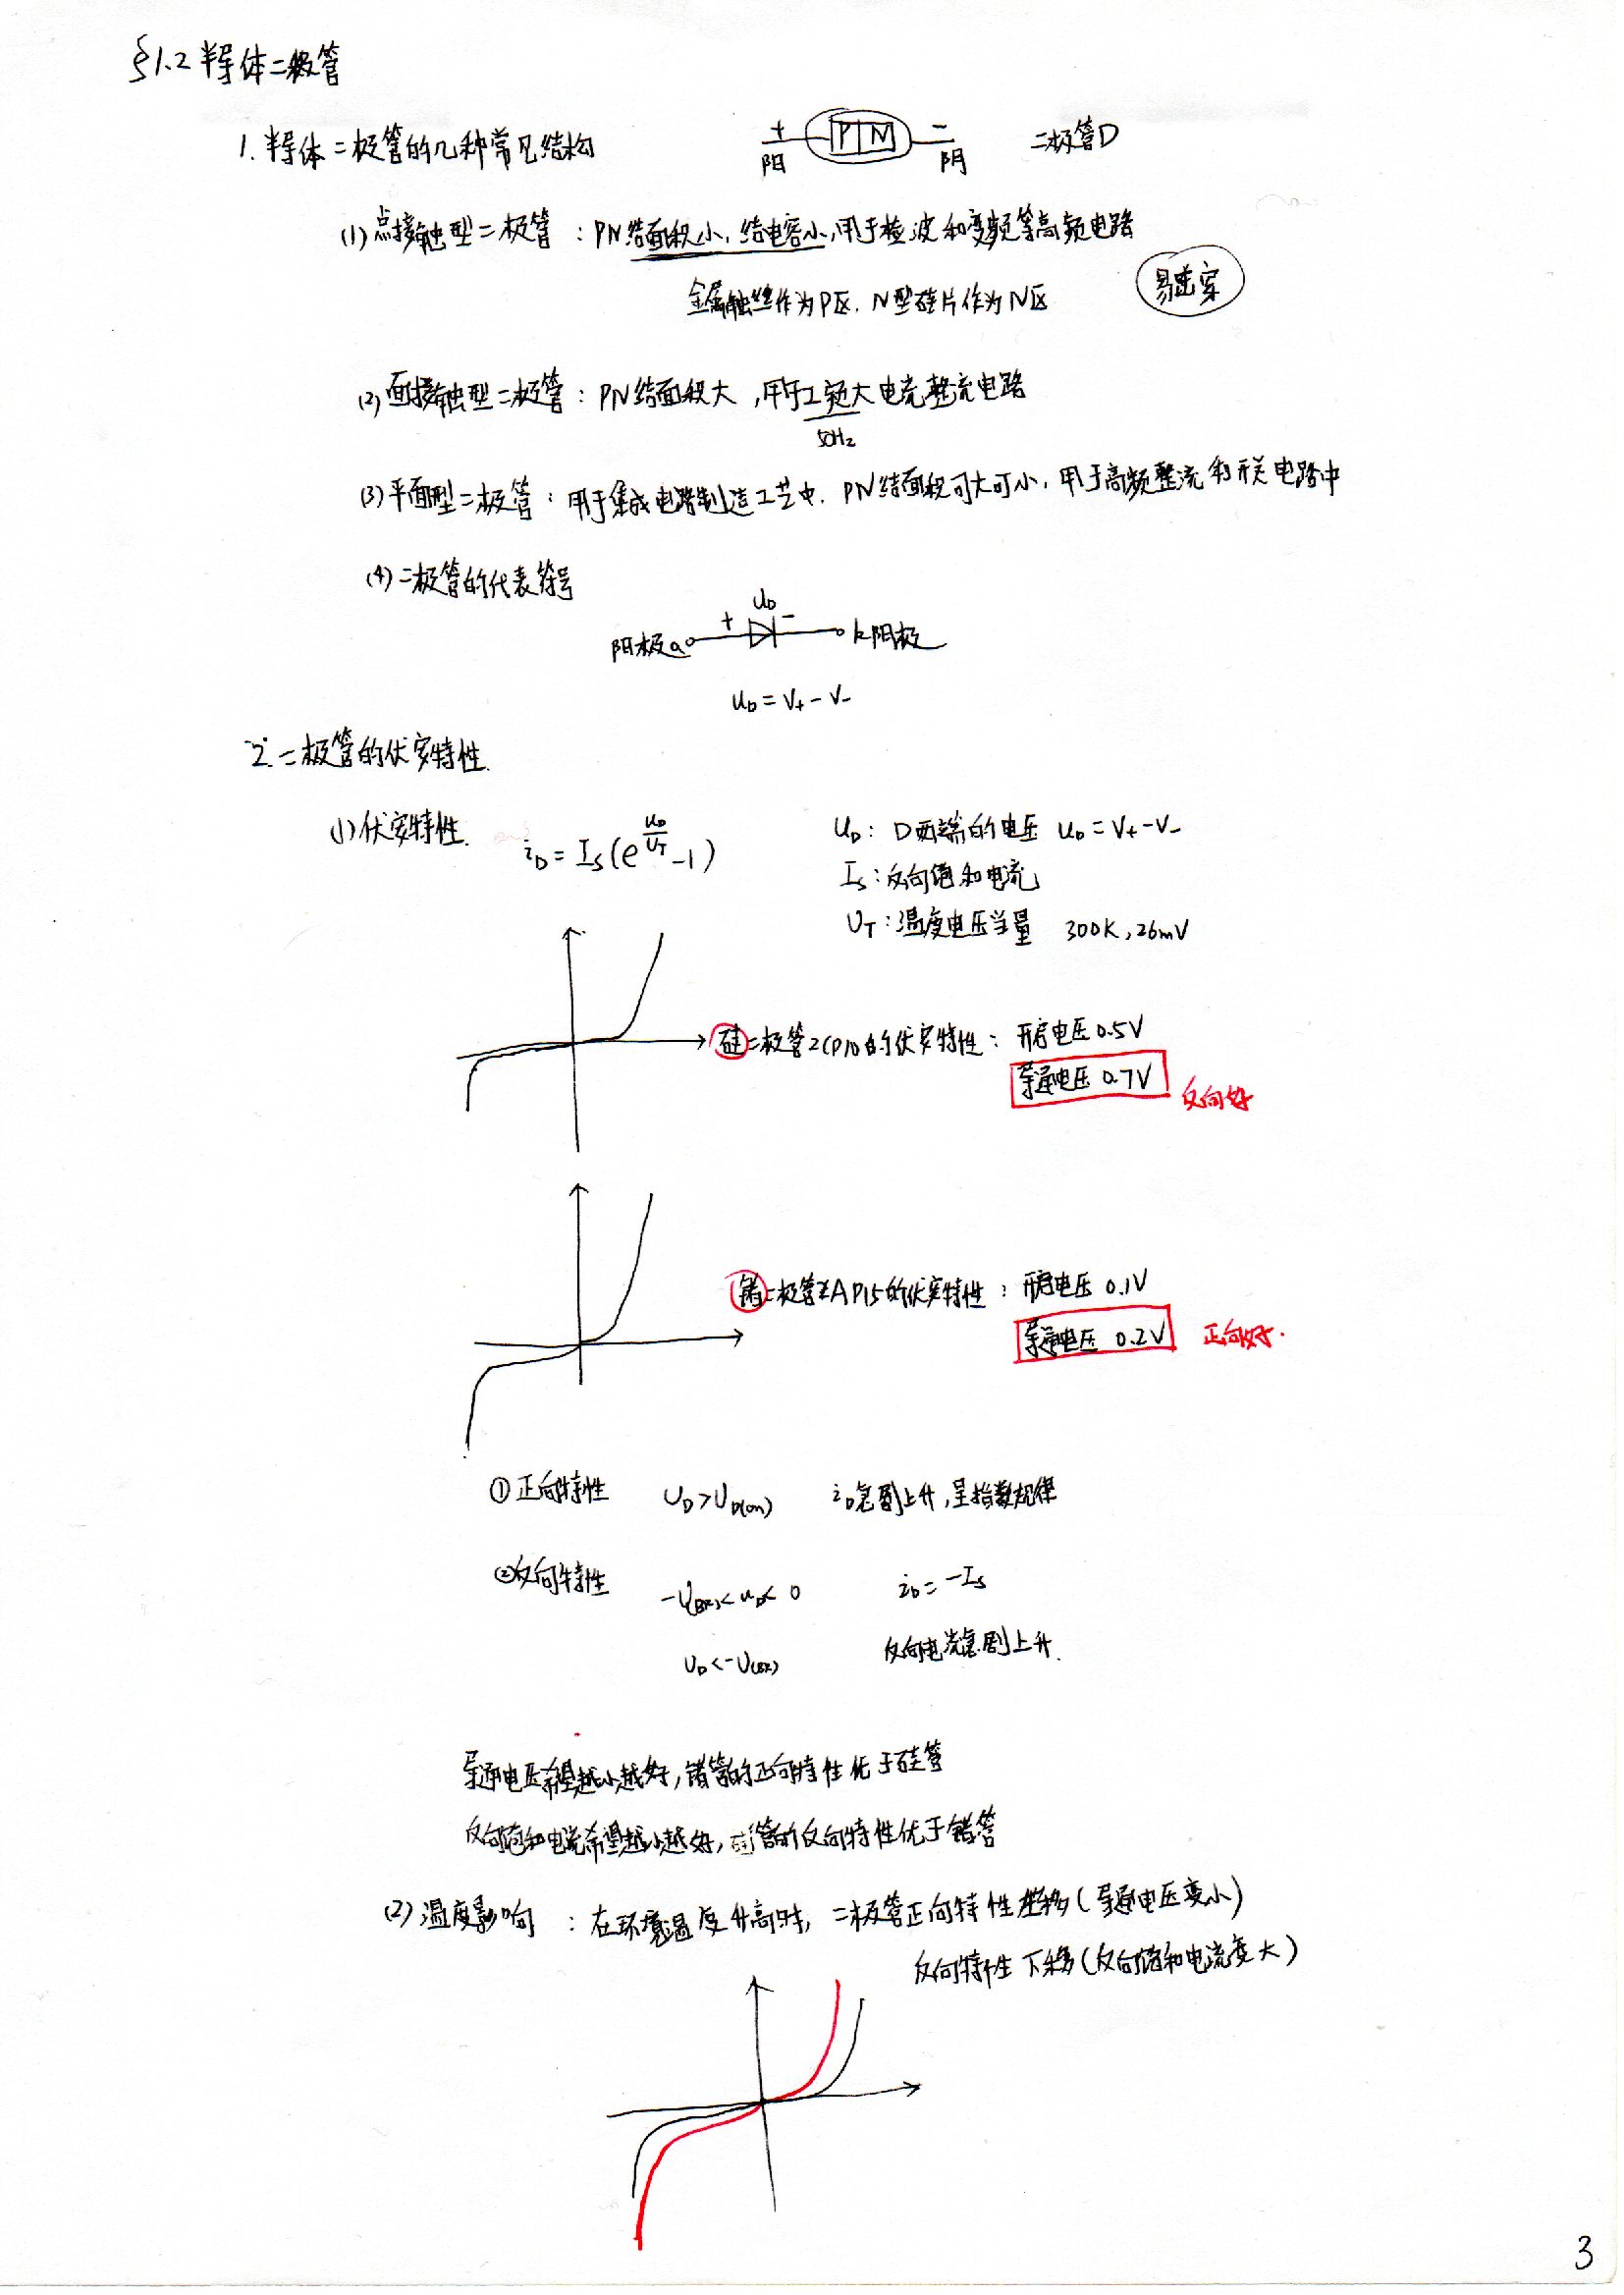 §1.2 半导体二极管
1. 半导体二极管的几种常见结构
+ P N - 二极管D
阳 阴
(1) 点接触型二极管：PN结面积小，结电容小，用于检波和变频等高频电路
金属触丝作为P区，N型硅片作为N区 易击穿
(2) 面接触型二极管：PN结面积大，用于工频大电流整流电路
50Hz
(3) 平面型二极管：用于集成电路制造工艺中，PN结面积可大可小，用于高频整流和开关电路中
(4) 二极管的代表符号
+ u_D -
阳极a k阴极
u_D = V+ - V-
2. 二极管的伏安特性.
(1) 伏安特性. i_D = I_S(e^{u_D/U_T} - 1)
U_D: D两端的电压 u_D = V+ - V-
I_S: 反向饱和电流
U_T: 温度电压当量 300K, 26mV
硅二极管2CP10的伏安特性：开启电压0.5V
导通电压 0.7V 反向好
锗二极管2AP15的伏安特性：开启电压 0.1V
导通电压 0.2V 正向好.
① 正向特性 U_D > U_D(on) i_D急剧上升，呈指数规律
② 反向特性 -U(BR) < u_D < 0 i_D = -I_S
U_D < -U(BR) 反向电流急剧上升.
导通电压希望越小越好，锗管的正向特性优于硅管
反向饱和电流希望越小越好，硅管的反向特性优于锗管
(2) 温度影响：在环境温度升高时，二极管正向特性左移(导通电压变小)
反向特性下移(反向饱和电流变大)
3